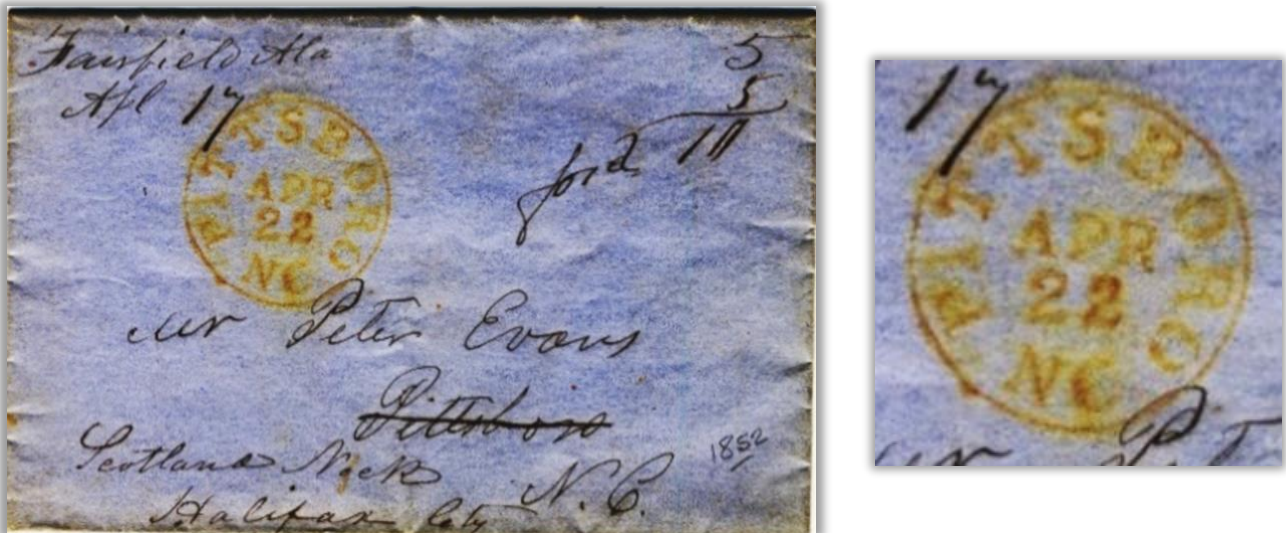 Fairfield Ala
Apl 17
5
5
10
ford
PITTSBORO
APR
22
NC
Mr Peter Evans
Pittsboro
Scotland Neck
N.C.
Halifax Cty
1852
17
PITTSBORO
APR
22
NC